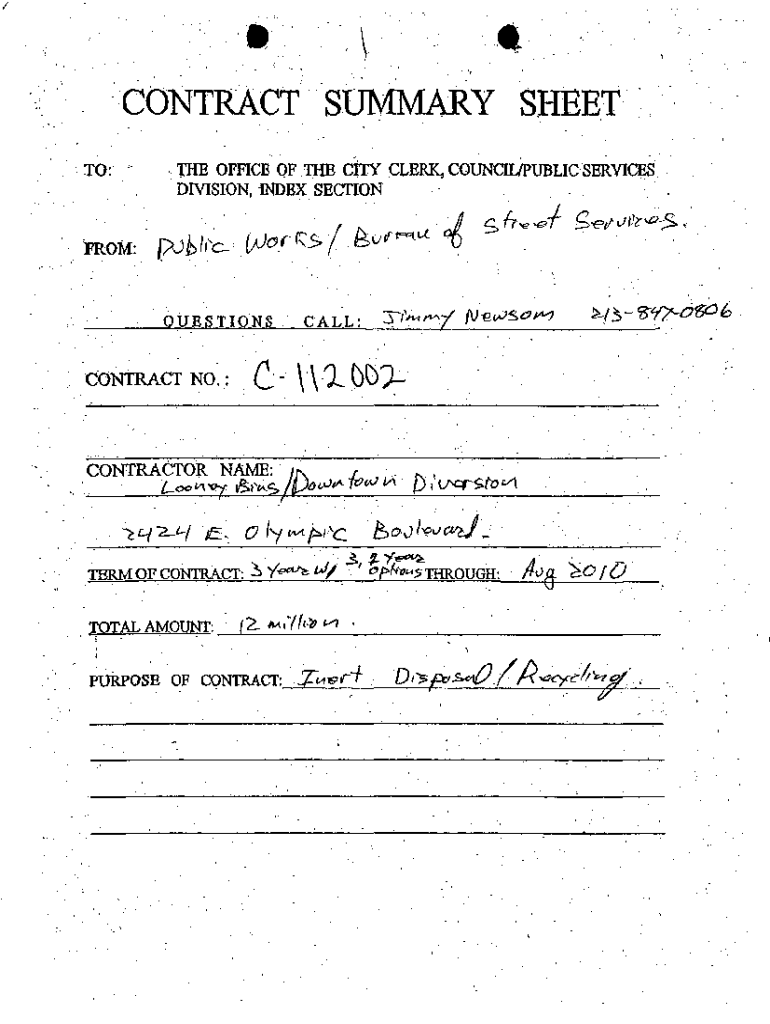 CONTRACT SUMMARY SHEET
TO: THE OFFICE OF THE CITY CLERK, COUNCIL/PUBLIC SERVICES
DIVISION, INDEX SECTION
FROM: Public Works / Bureau of Street Services.
QUESTIONS CALL: Jimmy Newsom 213-847-0806
CONTRACT NO.: C-112002
CONTRACTOR NAME:
Looney Bins/Downtown Diversion
2424 E. Olympic Boulevard.
TERM OF CONTRACT: 3 years w/ 3, 2 year options THROUGH: Aug 2010
TOTAL AMOUNT: 12 million.
PURPOSE OF CONTRACT: Inert Disposal / Recycling.